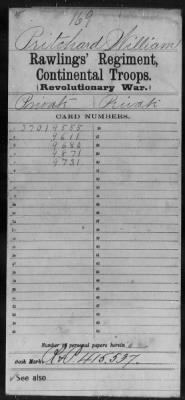 169
Pritchard William
Rawlings' Regiment,
Continental Troops.
(Revolutionary War.)
Private Private
CARD NUMBERS.
37019555
9611
9682
9871
9731
Number of personal papers herein
Book Mark: R&P. 415,597.
See also